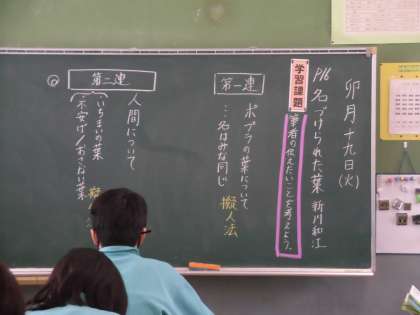 卯月十九日(火)
P16 名づけられた葉 新川和江
学習課題
筆者の伝えたいことを考えよう。
第一連
ポプラの葉について
…名はみな同じ
擬人法
第二連
人間について
いちまいの葉
不安げ/おさない葉